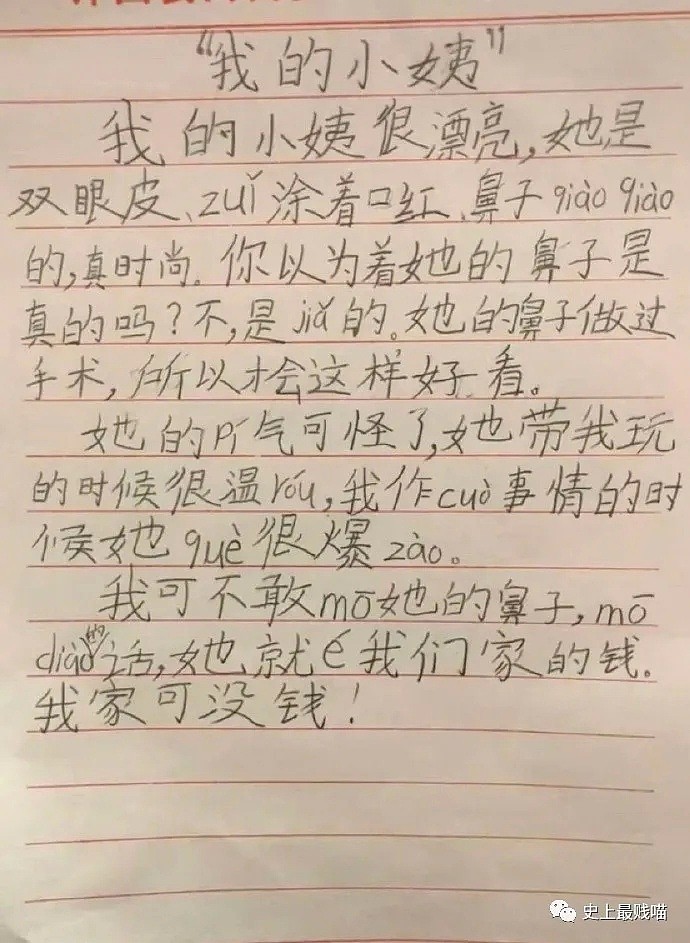 “我的小姨”
我的小姨很漂亮,她是
双眼皮、zuǐ涂着口红、鼻子qiào qiào
的,真时尚。你以为着她的鼻子是
真的吗?不,是jiǎ的。她的鼻子做过
手术,所以才会这样好看。
她的pí气可怪了,她带我玩
的时候很温róu,我作cuò事情的时
候她què很爆zào。
我可不敢mō她的鼻子,mō
diào的话,她就é我们家的钱。
我家可没钱!
史上最贱喵